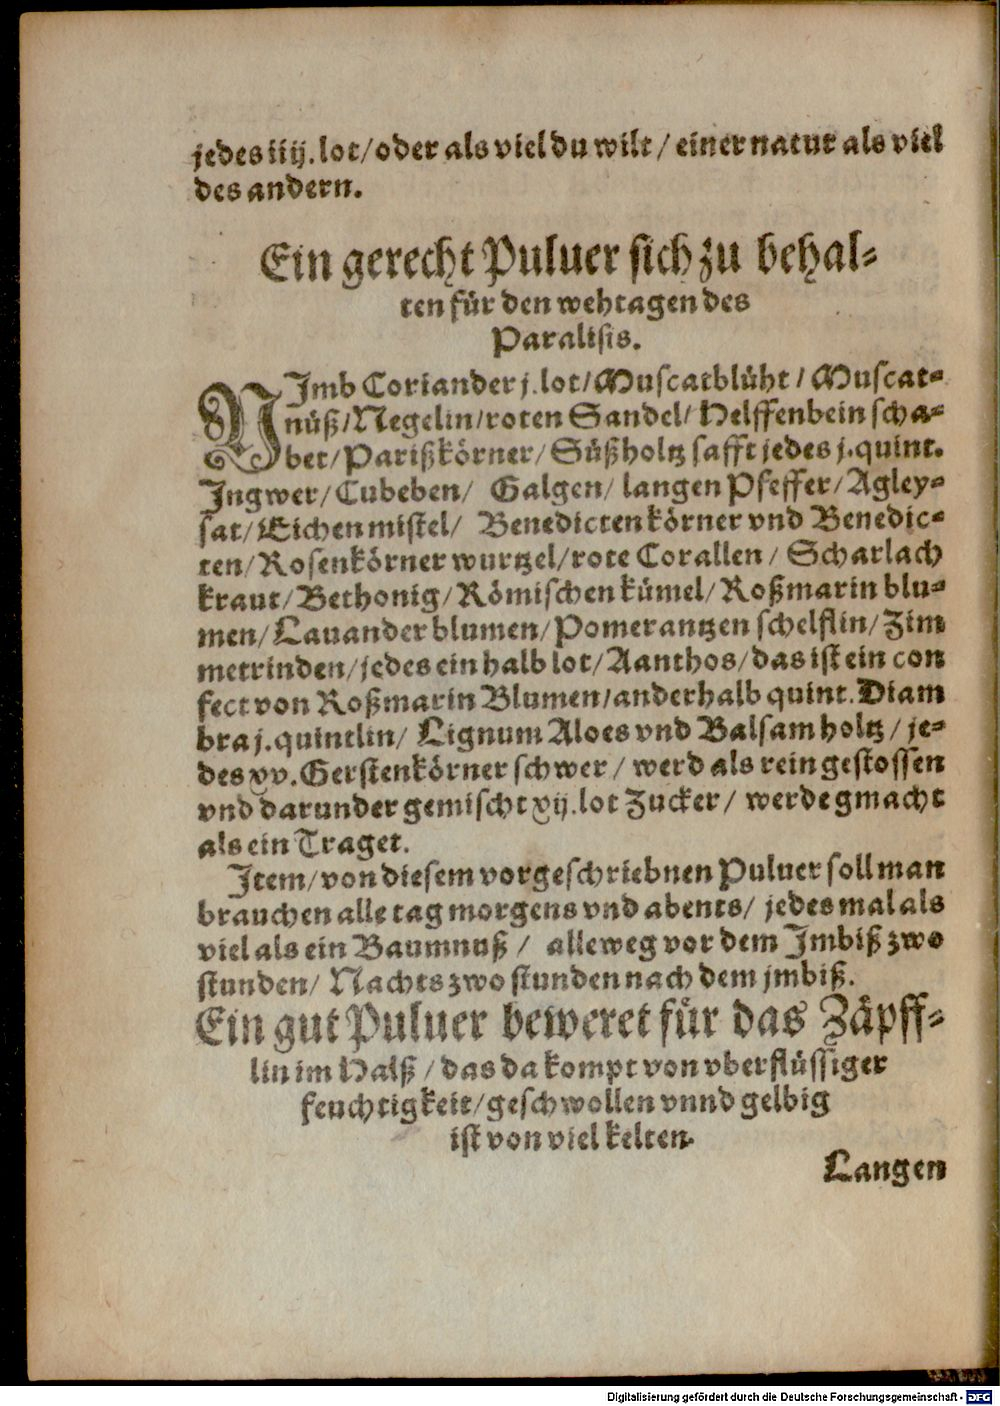 jedes iiij. lot/oder als viel du wilt/einer natur als viel
des andern.
Ein gerecht Puluer sich zu behal-
ten für den wehtagen des
Paralisis.
NImb Coriander j. lot/Muscatblüht/Muscat-
nüß/Negelin/roten Sandel/Helffenbein scha-
bet/Parißkörner/Süßholtz safft jedes j. quint.
Ingwer/Cubeben/ Galgen/langen Pfeffer/Agley-
sat/Eichen mistel/ Benedicten körner vnd Benedic-
ten/Rosenkörner wurtzel/rote Corallen/Scharlach
kraut/Bethonig/Römischen kümel/Roßmarin blu-
men/Lauander blumen/Pomerantzen schelflin/Zim
metrinden/jedes ein halb lot/Aanthos/das ist ein con
fect von Roßmarin Blumen/anderhalb quint. Diam
bra j. quintlin/ Lignum Aloes vnd Balsam holtz/je-
des xv. Gerstenkörner schwer/werd als rein gestossen
vnd darunder gemischt xij. lot Zucker/werde gmacht
als ein Traget.
Item/von diesem vorgeschriebnen Puluer soll man
brauchen alle tag morgens vnd abents/jedes mal als
viel als ein Baumnuß/ alleweg vor dem Imbiß zwo
stunden/Nachts zwo stunden nach dem jmbiß.
Ein gut Puluer beweret für das Zäpff-
lin im Halß/das da kompt von vberflüssiger
feuchtigkeit/geschwollen vnnd gelbig
ist von viel kelten.
Langen
Digitalisierung gefördert durch die Deutsche Forschungsgemeinschaft - DFG